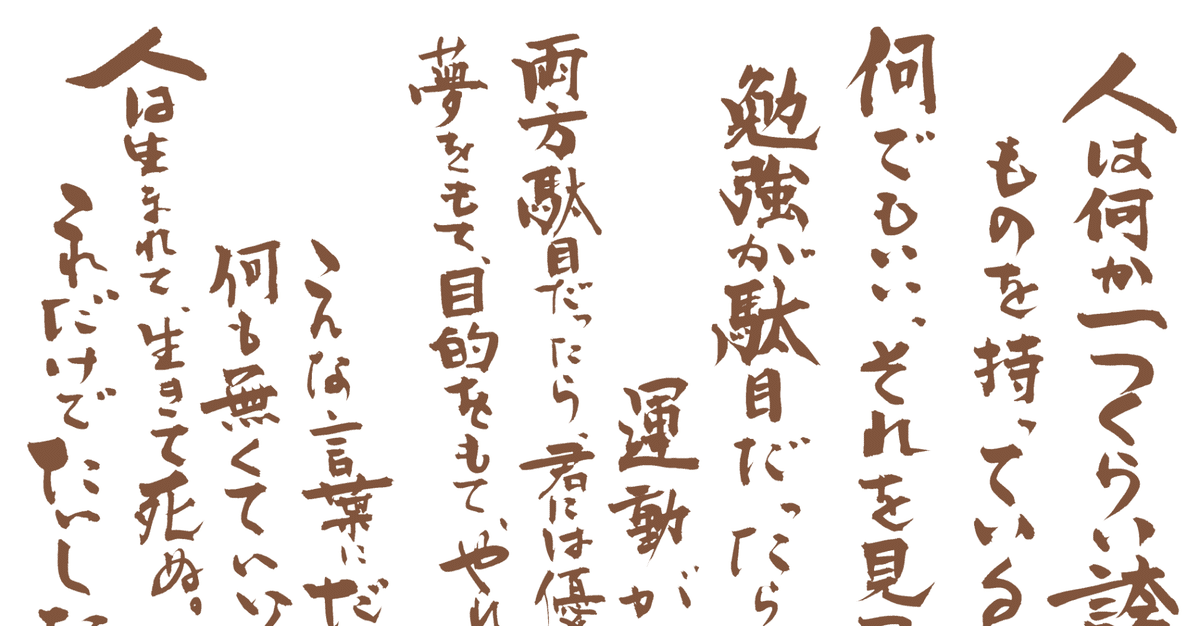 人は何か一つくらい誇
ものを持っている
何でもいい、それを見
勉強が駄目だったら
運動が
両方駄目だったら、君には優
夢をもて、目的をもて、やれ
こんな言葉にだ
何も無くていい
人は生まれて、生きて死ぬ。
これだけでたいし